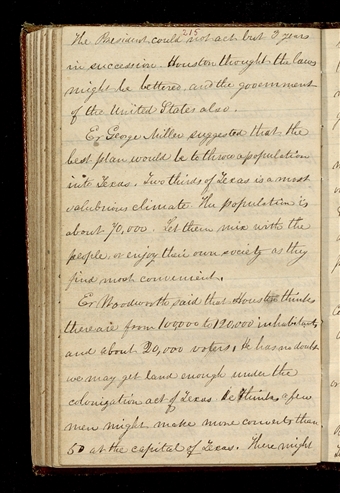 215
The President could not act but 3 years
in succession. Houston thought the laws
might be bettered, and the government
of the United States also.
Er George Miller suggested that the
best plan would be to throw a population
into Texas. Two thirds of Texas is a most
salubrious climate. The population is
about 70,000. Let them mix with the
people, or enjoy their own society as they
find most convenient.
Er Woodworth said that Houston thinks
there are from 100000 to 120,000 inhabitants,
and about 20,000 voters, He has no doubt
we may get land enough under the
colonization act of Texas He thinks a few
men might make more converts than
50 at the capital of Texas. There might